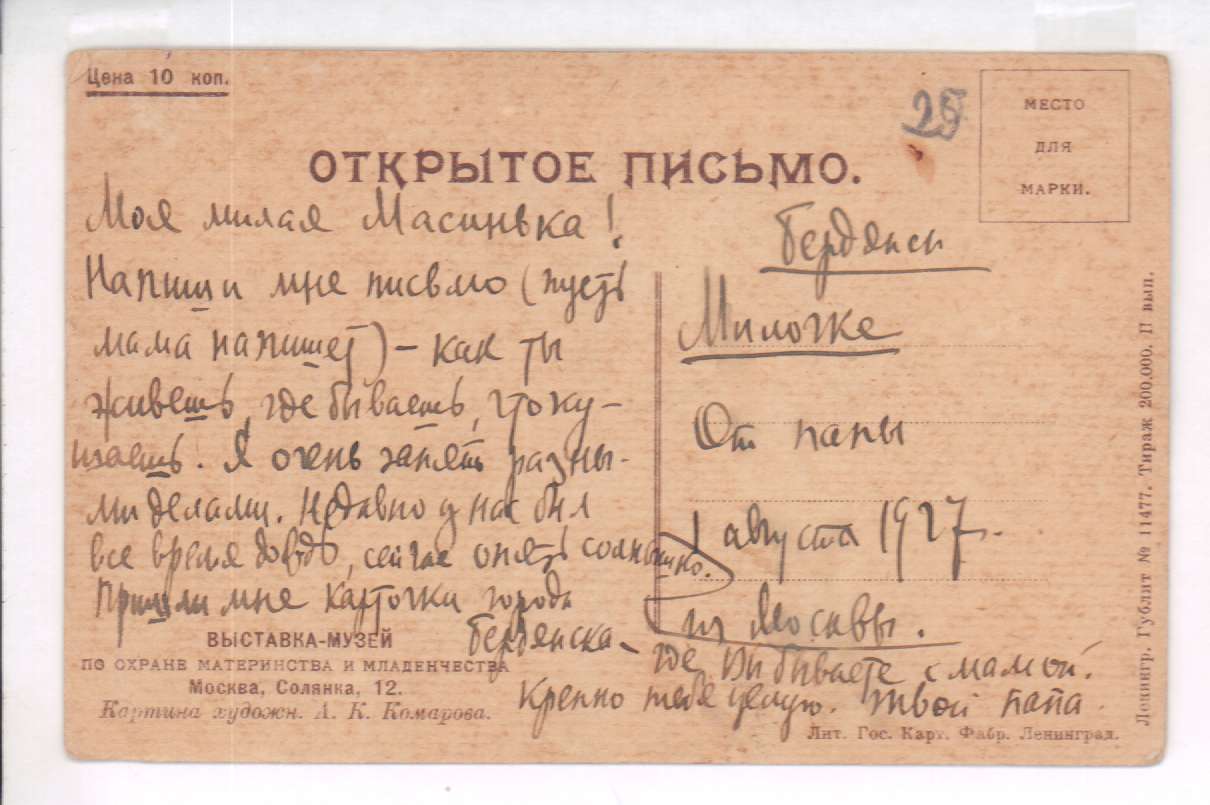 Цена 10 коп.
29
МЕСТО
ДЛЯ
МАРКИ.
ОТКРЫТОЕ ПИСЬМО.
Моя милая Масинька!
Напиши мне письмо (пусть
мама напишет) – как ты
живешь, где бываешь, что ку-
шаешь. Я очень занят разны-
ми делами. Недавно у нас был
все время дождь, сейчас опять солнышко.
Пришли мне карточки города
Бердянска – где Вы бываете с мамой.
Крепко тебя целую. Твой папа.
Бердянск
Милочке
От папы
1 августа 1927.
из Москвы.
ВЫСТАВКА-МУЗЕЙ
ПО ОХРАНЕ МАТЕРИНСТВА И МЛАДЕНЧЕСТВА
Москва, Солянка, 12.
Картина художн. А. К. Комарова.
Лит. Гос. Карт. Фабр. Ленинград.
Ленингр. Гублит № 11477. Тираж 200.000. II вып.